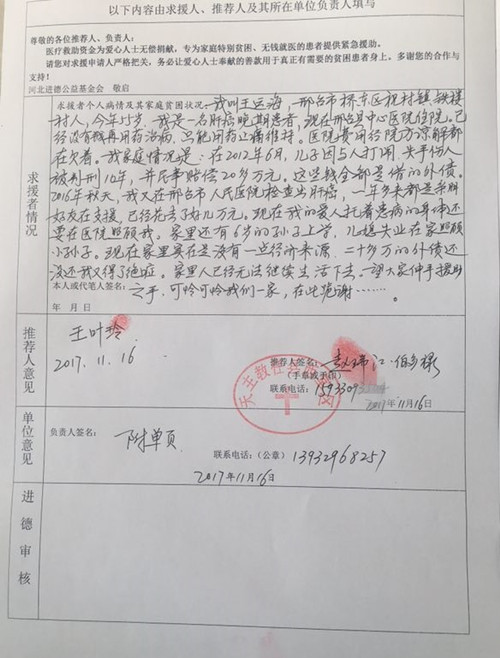 以下内容由求援人、推荐人及其所在单位负责人填写
尊敬的各位推荐人、负责人：
医疗救助资金为爱心人士无偿捐献，专为家庭特别贫困、无钱就医的患者提供紧急援助。
请您对求援申请人严格把关，务必让爱心人士奉献的善款用于真正有需要的贫困患者身上。多谢您的合作与
支持！
河北进德公益基金会 敬启
求援者情况
求援者个人病情及其家庭贫困状况：我叫王运海，邢台市桥东区祝村镇铁楼
村人，今年57岁，我是一名肝癌晚期患者，现在邢台县中心医院住院。已
经没有钱再用药治病，只能用药止痛维持。医院费用经协谅解都
在欠着。我家庭情况是：在2012年6月，儿子因与人打闹，失手伤人
被判刑10年，并民事赔偿20多万。这些钱全部是借的外债。
2016年秋天，我又在邢台市人民医院检查出肝癌，一年多来都是亲朋
好友在支援，已经花去了好几万元。现在我的爱人托着患病的身体还
要在医院照顾我。家里还有6岁的孙子上学，儿媳失业在家照顾
小孙子。现在家里实在是没有一点经济来源，二十多万的外债还
没还我又得了绝症。家里人已经无法继续生活下去。望大家伸手援助
之手，可怜可怜我们一家，在此跪谢……。
本人或代笔人签名：
年 月 日
推荐人意见
王叶玲
2017.11.16
推荐人签名：
（手章或手印）
联系电话：
2017年11月16日
天主教
单位意见
负责人签名：
附单页
联系电话：（公章） 13932968257
2017年11月16日
进德审核